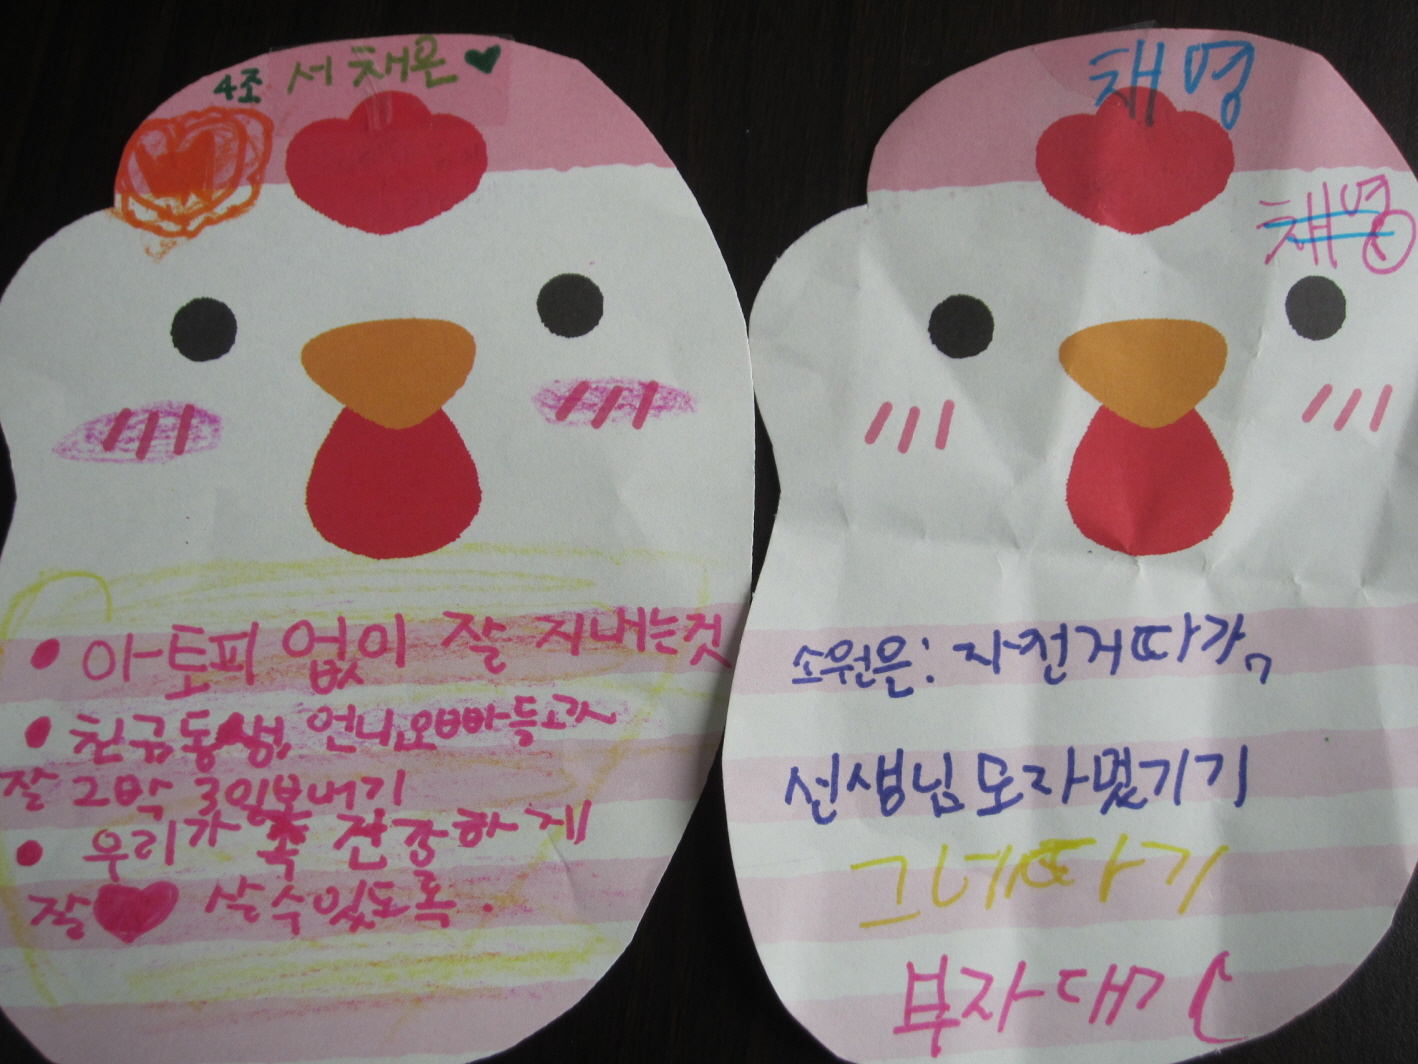 4조 서채은
• 아토피 없이 잘 지내는것
• 친금동생, 언니오빠들과
잘 2박 3일보내기
• 우리가 쭉 건강하게
잘 살수있도록.
채명
채명
소원은: 자전거따기
선생님모자멏기기
그네따기
부자대기